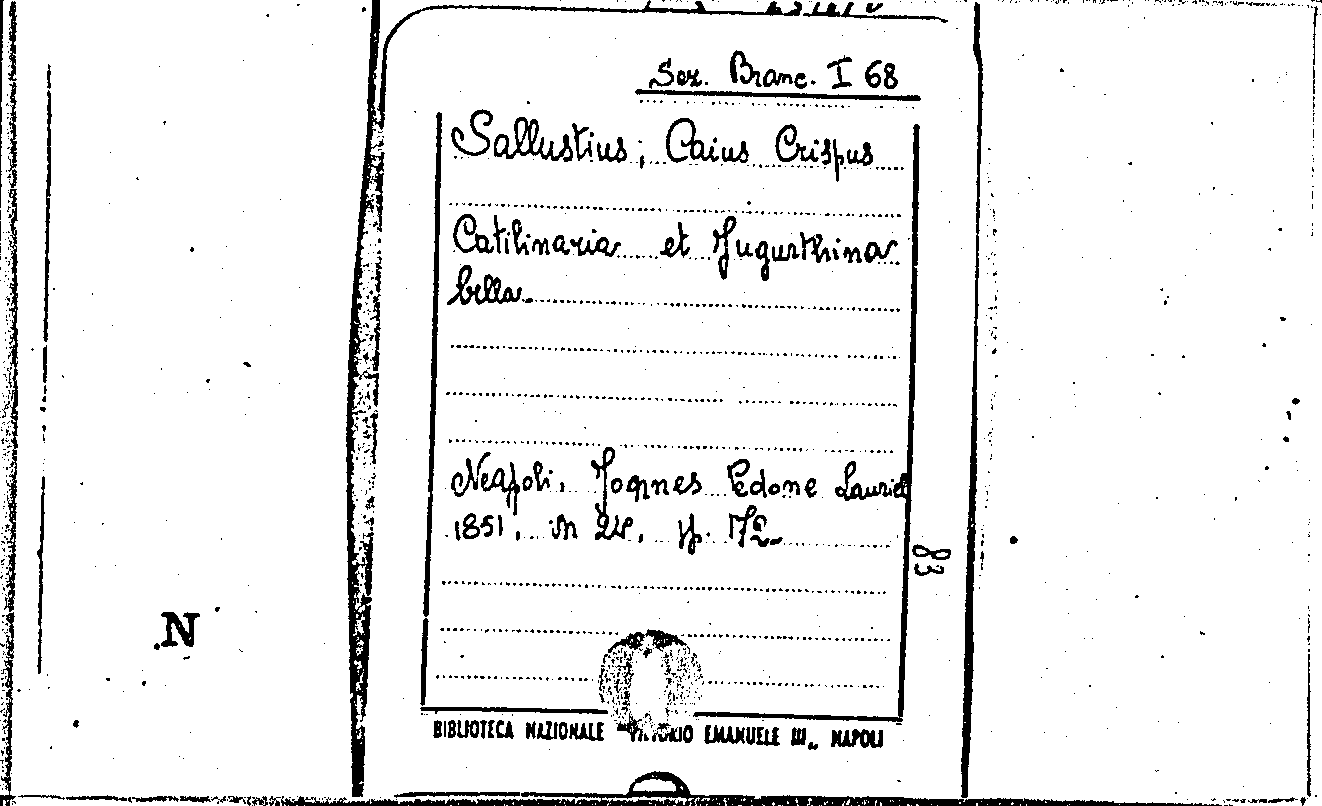 Sez. Branc. I 68
Sallustius, Caius Crispus
Catilinaria et Jugurthina
bella.
Neapoli, Joannes Pedone Lauriel
1851. in 24. p. 172.
83
BIBLIOTECA NAZIONALE "VITTORIO EMANUELE III„ NAPOLI
N